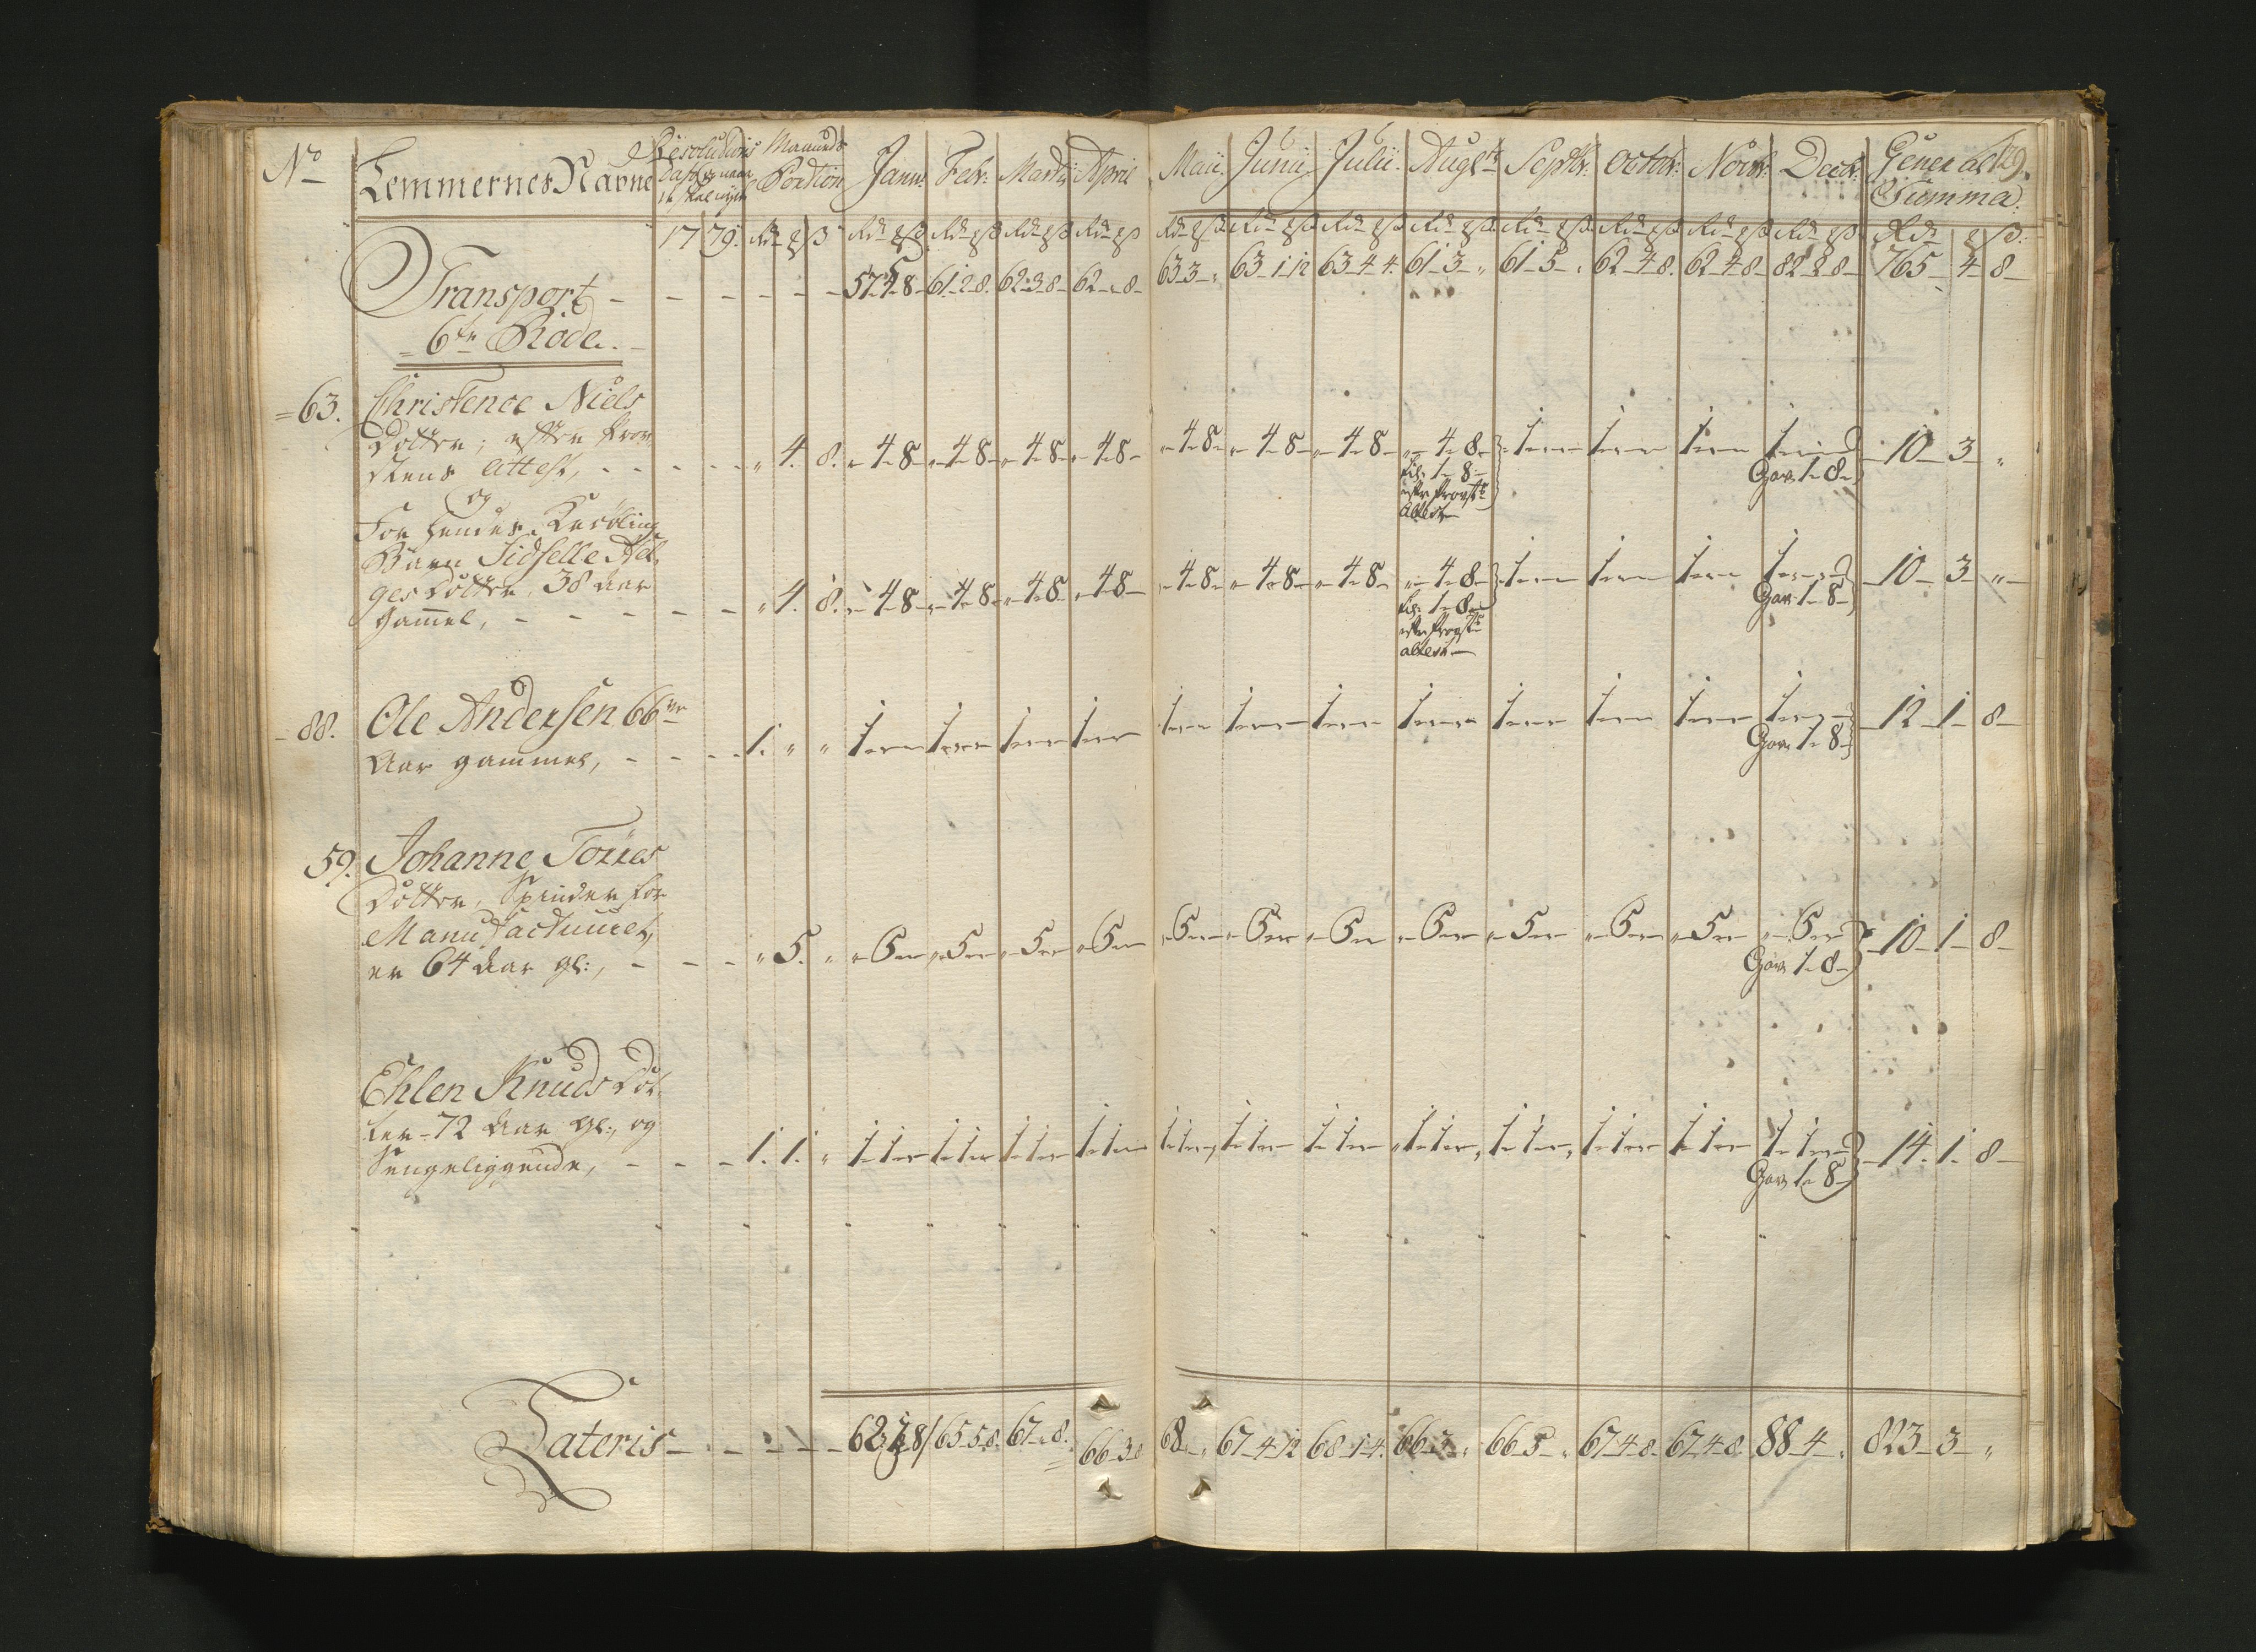 No Lemmernes Navne Resolutions Maaneds Portion Janu: Febr: Martii April Maii Junii Julii Augst: Septbr: Octobr: Novbr: Decbr: General 19.
Summa
1779.
Transport - - - - - - 57-4-8- 61-2-8. 62-3-8- 62-„-8- 63-3-„ 63-1-12 63-4-4. 61-3-„ 61-5-„ 62-4-8. 62-4-8- 82-2-8- 765-4-8-
6te Rode.
63. Christence Niels
Dotter; efter Prov
stens Attest, - - - - „ 4. 8. „-4-8- „-4-8- „-4-8- „-4-8- „-4-8- „-4-8- „-4-8- „-4-8- 1- 1- 1- 1- 10-3-„
1-8- Gav 1-8-
efter Provst:
Attest
og
For hendes
Barn Sidselle Hel,
ges Dotter, 38 Aar
gammel, - - - - „ 4. 8. „-4-8- „-4-8- „-4-8- „-4-8- „-4-8- „-4-8- „-4-8- „-4-8- 1- 1- 1- 1- 10-3-„-
1-8- Gav 1-8-
efter Provst:
attest
88. Ole Andersen 66
Aar gammel, - - - 1. „ „ 1- 1- 1- 1- 1- 1- 1- 1- 1- 1- 1- 1- 12-1-8-
Gav 1-8-
59. Johanne Torres
Dotter, Spinder for
Manufacturiet,
er 64 Aar gl:, - - - „ 5. „ „-5- „-5- „-5- „-5- „-5- „-5- „-5- „-5- „-5- „-5- „-5- „-5- 10-1-8-
Gav 1-8-
Ehlen Knuds Dot
ter - 72 Aar gl:, og
Sengeliggende, - - - 1. 1. „ 1-1- 1-1- 1-1- 1-1- 1-1- 1-1- 1-1- 1-1- 1-1- 1-1- 1-1- 1-1- 14-1-8-
Gav 1-8-
Lateris - - - - 65-5-8. 67-„-8. 66-3-8 68-„-„ 67-4-12 68-1-4. 66-3-„ 66-5-„ 67-4-8- 67-4-8 88-4-„ 823-3-„